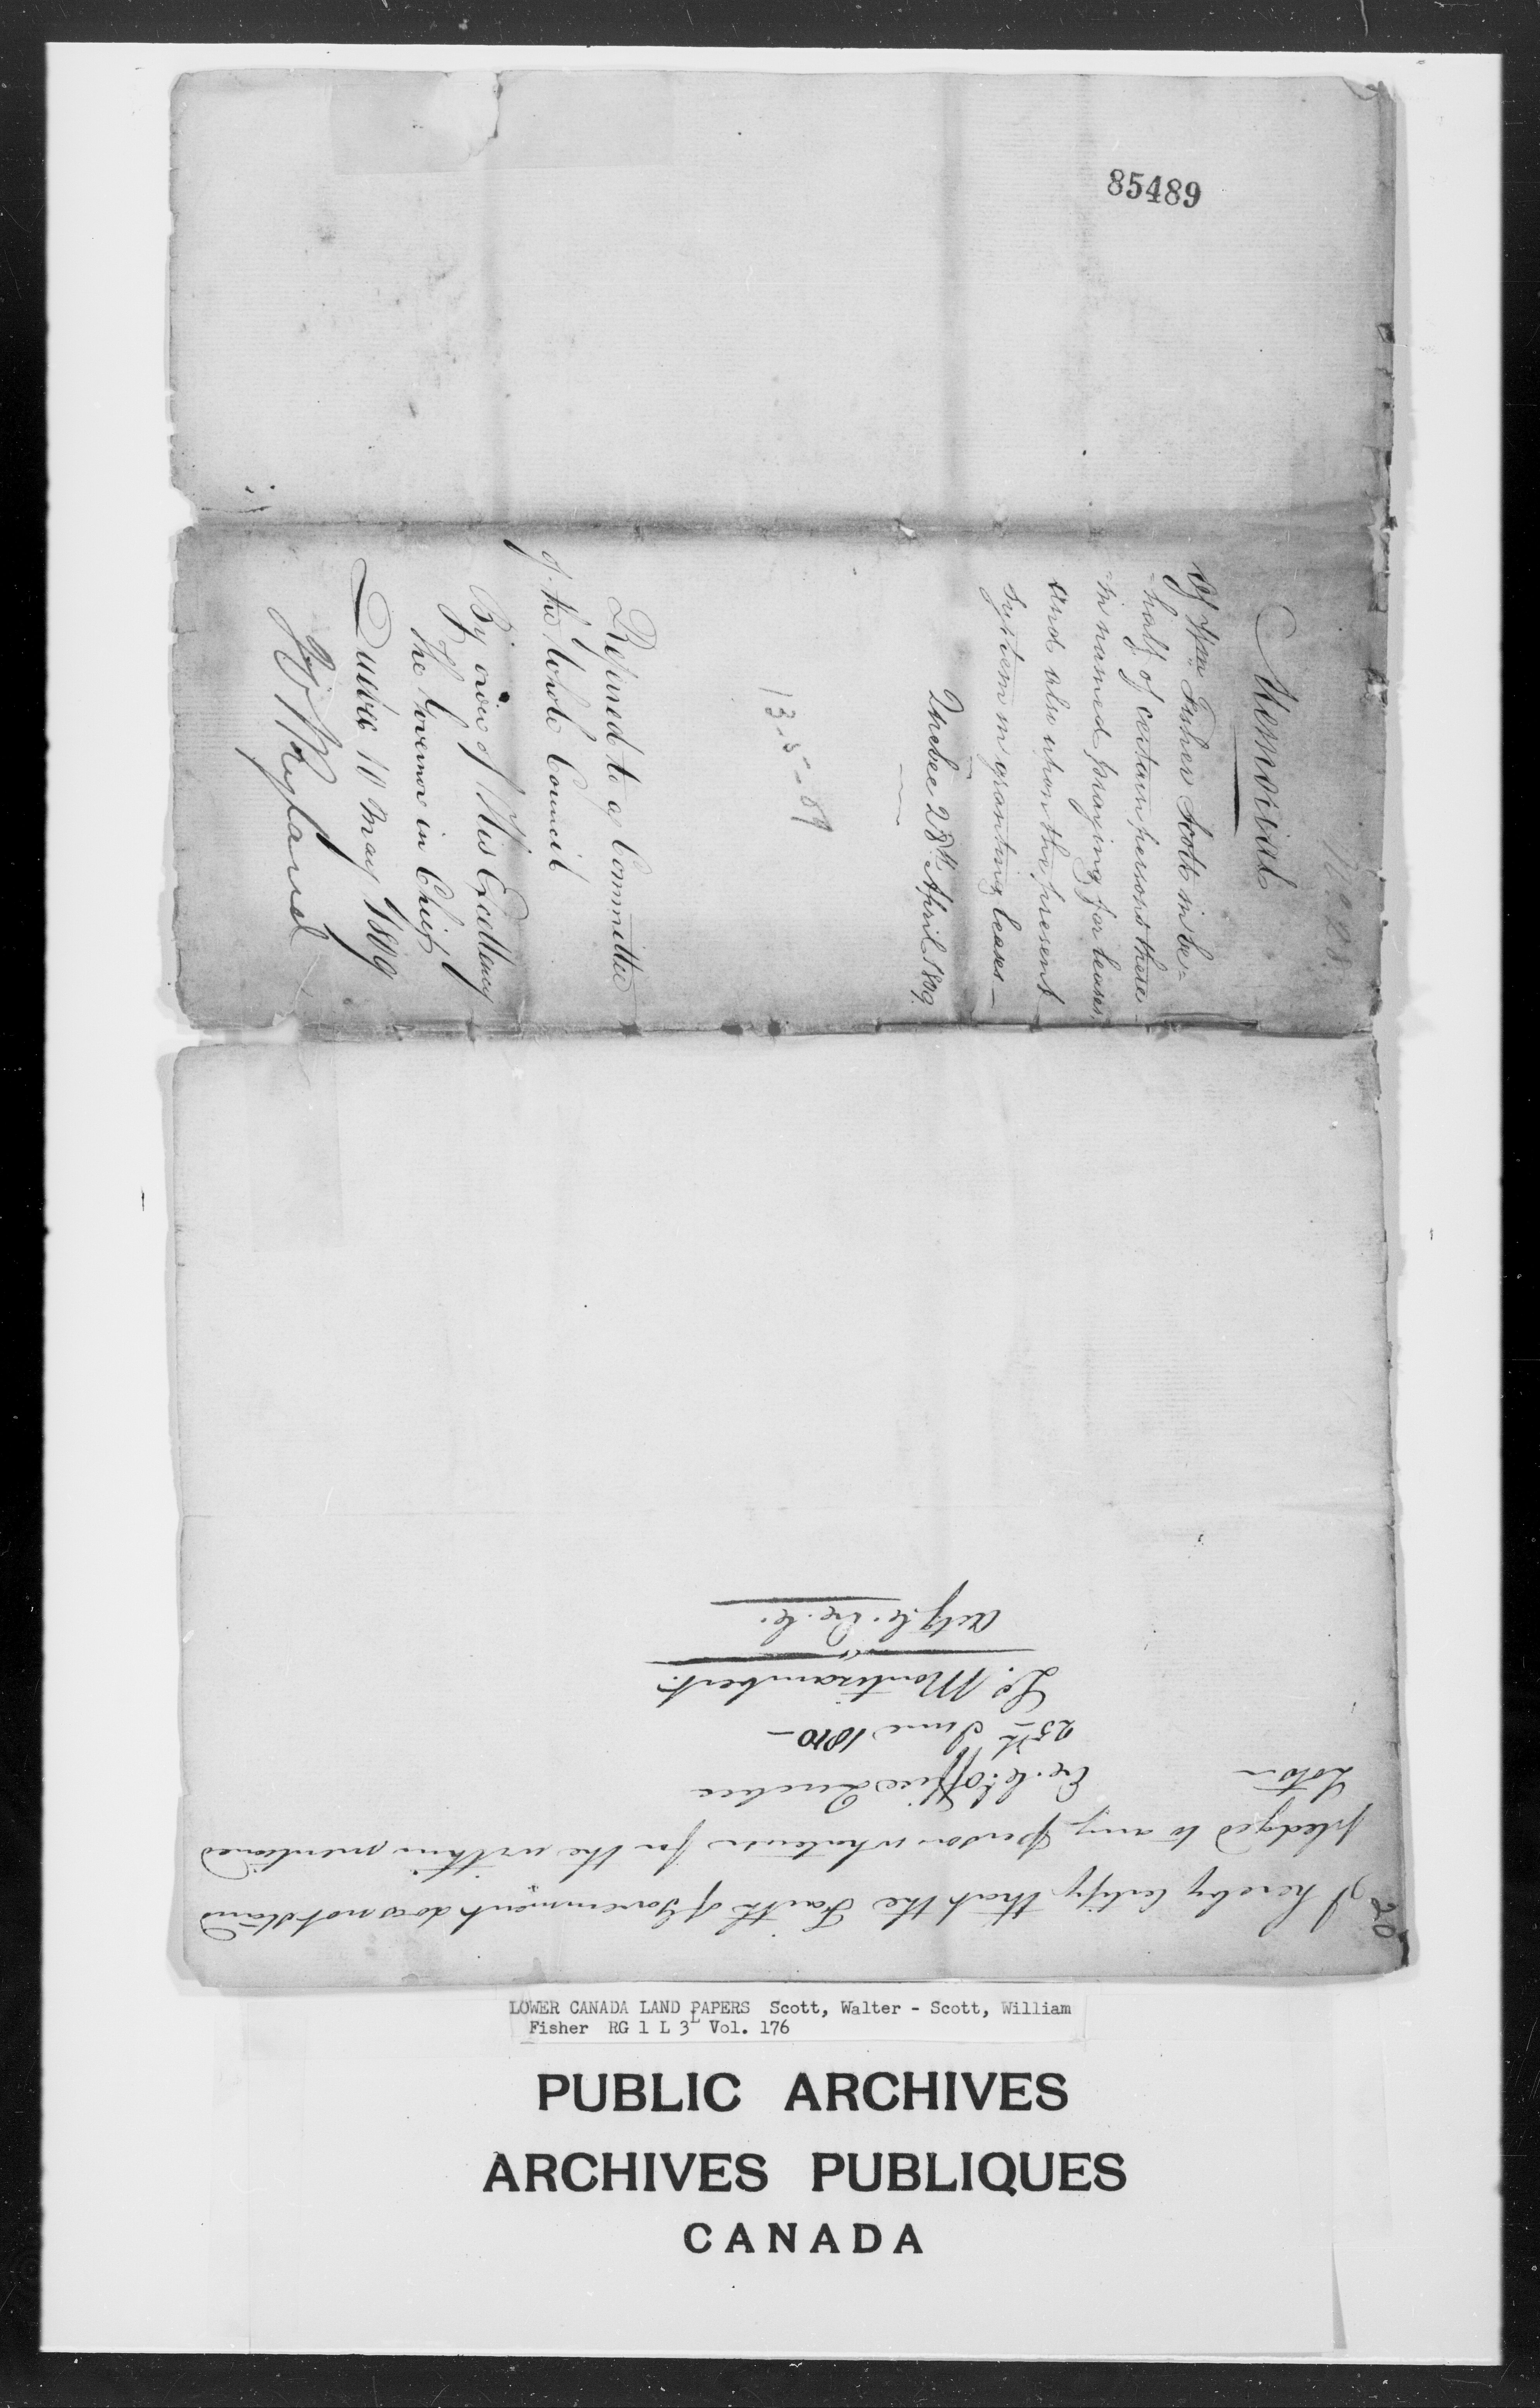 85489
No 28.
Memorial
Of Wm Fisher Scott in be-
half of certain persons there-
in named, praying for leases,
and also upon the present
system in granting leases—
Quebec 28th April 1809.
13-5-09
Refered to a Committee
of the Whole Council
By order of His Excellency
The Governor in Chief
Quebec 10 May 1809
H W Ryland
20
I hereby Certify that the Faith of Government does not stand
pledged to any person whatever for the within mentioned
Lots—
Ex. C. Office Quebec
25th June 1810—
Ls. Montizambert.
Actg. C. Ex. C.
LOWER CANADA LAND PAPERS Scott, Walter - Scott, William
Fisher RG 1 L 3L Vol. 176
PUBLIC ARCHIVES
ARCHIVES PUBLIQUES
CANADA